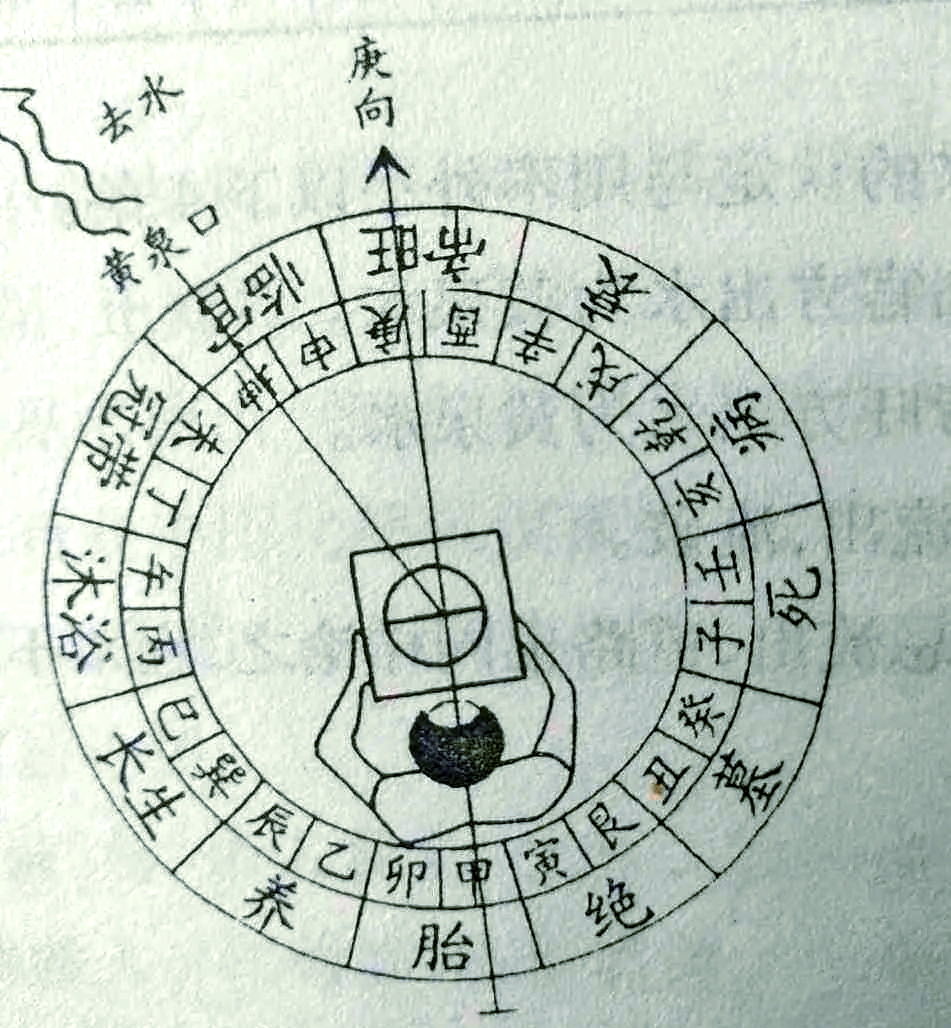 去水
庚向
黄泉口
帝旺
衰
病
死
墓
绝
胎
养
长生
沐浴
冠带
临官
庚
酉
辛
戌
乾
亥
壬
子
癸
丑
艮
寅
甲
卯
乙
辰
巽
巳
丙
午
丁
未
坤
申